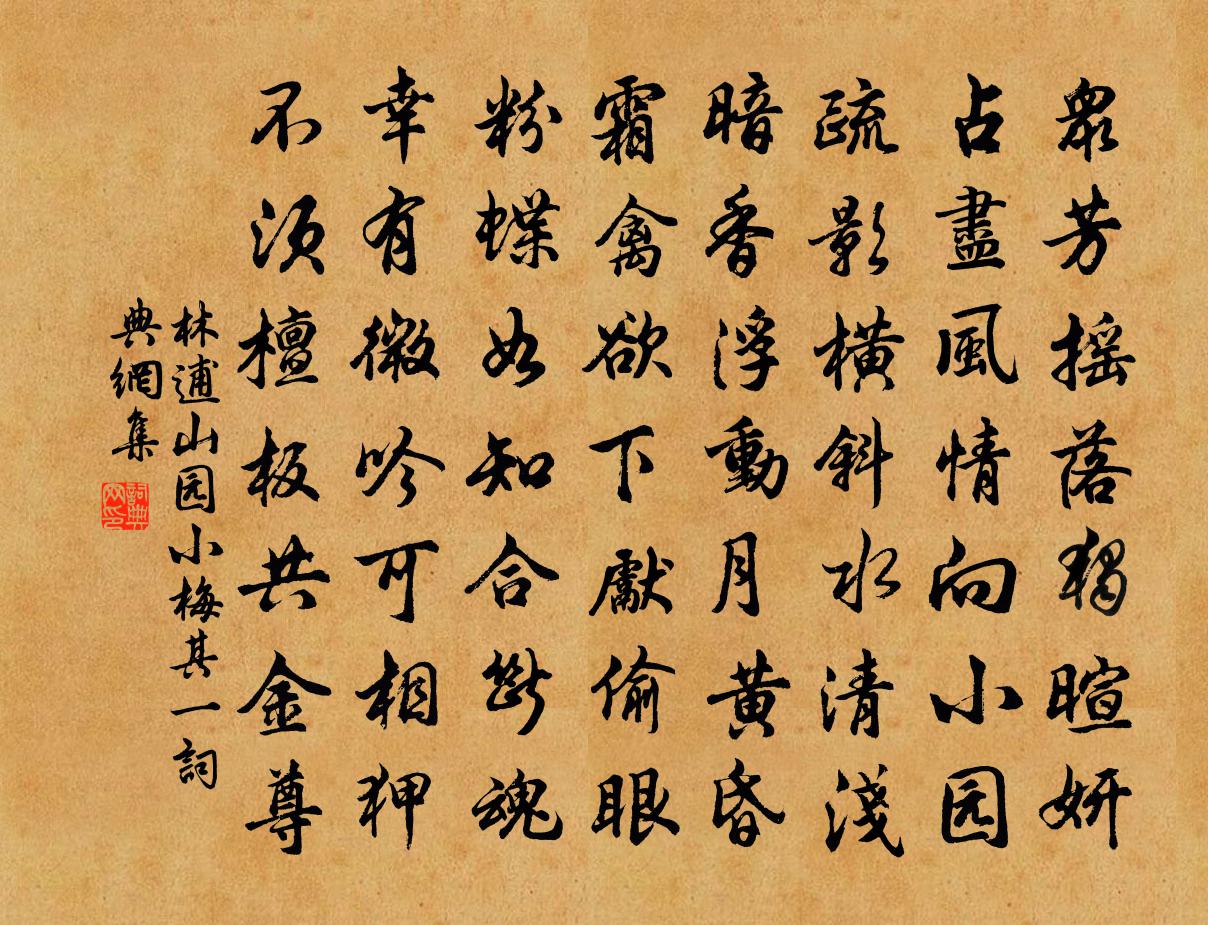 衆芳摇落獨暄妍
占盡風情向小园
疏影橫斜水清淺
暗香浮動月黃昏
霜禽欲下獻偷眼
粉蝶如知合斷魂
幸有微吟可相狎
不須檀板共金尊
林逋山园小梅其一詞
典網集
詞典
网印